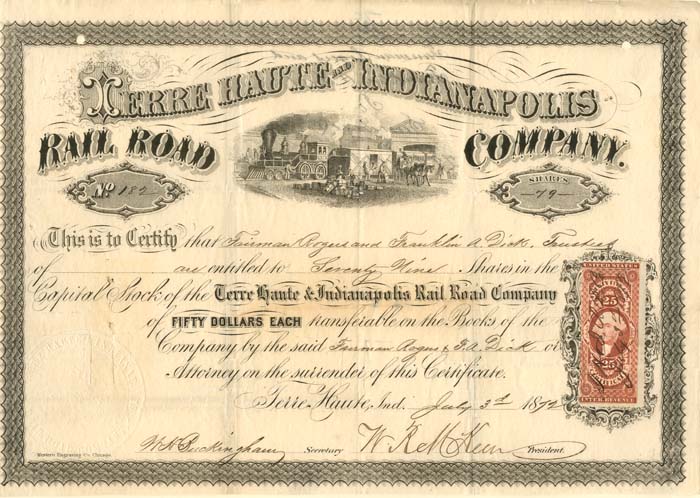 TERRE HAUTE AND INDIANAPOLIS
RAIL ROAD COMPANY.
No. 182
SHARES
79
This is to Certify that Fairman Rogers and Franklin A. Dick, Trustees
of are entitled to Seventy Nine Shares in the
Capital Stock of the Terre Haute & Indianapolis Rail Road Company
of FIFTY DOLLARS EACH transferable on the Books of the
Company by the said Fairman Rogers & F. A. Dick or
Attorney on the surrender of this Certificate.
Terre Haute, Ind. July 3d 1872
W. H. Buckingham Secretary W R McKeen President.
Western Engraving Co. Chicago.
UNITED STATES
25
25
INTER. REVENUE